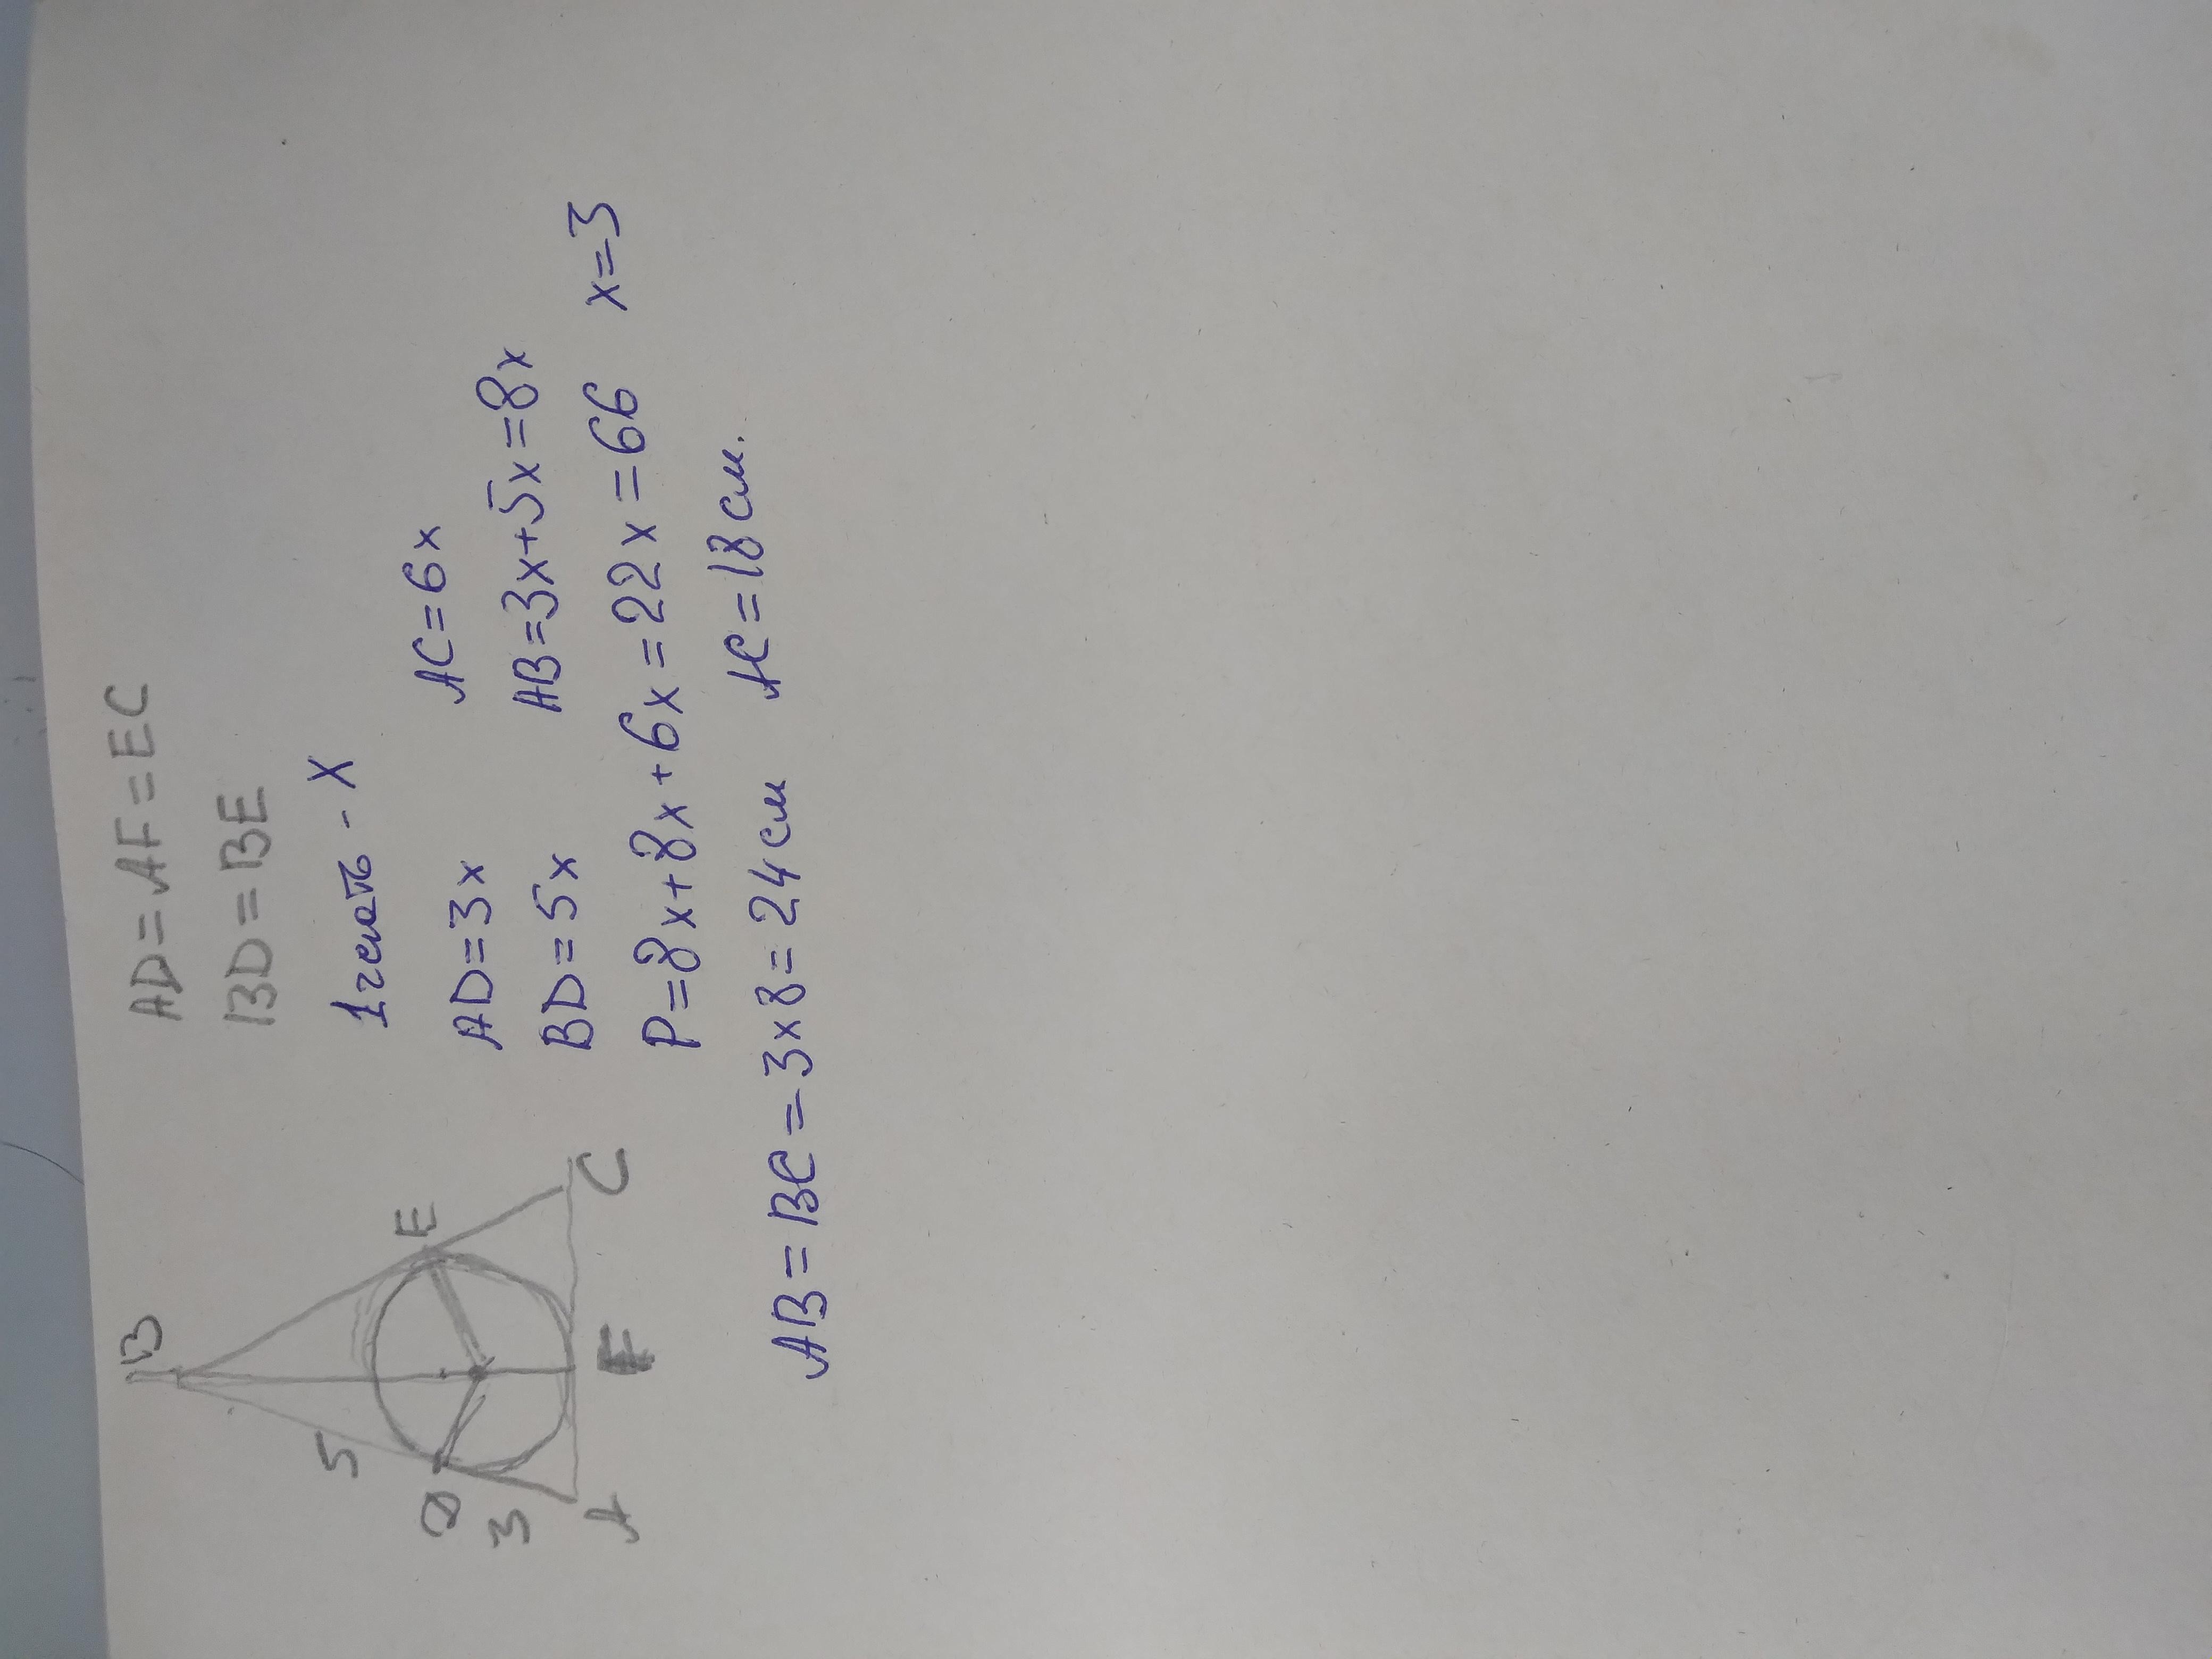 B
5
D
E
3
A
F
C
AD=AF=EC
BD=BE
1 часть - X
AD=3x AC=6x
BD=5x AB=3x+5x=8x
P=8x+8x+6x=22x=66 x=3
AB=BC=3x8=24см AC=18см.